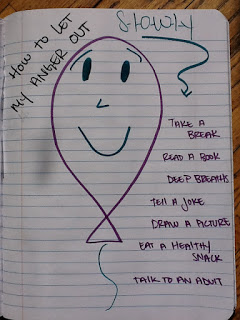 HOW TO LET
MY ANGER OUT
Slowly
TAKE A
BREAK
READ A BOOK
DEEP BREATHS
TELL A JOKE
DRAW A PICTURE
EAT A HEALTHY
SNACK
TALK TO AN ADULT